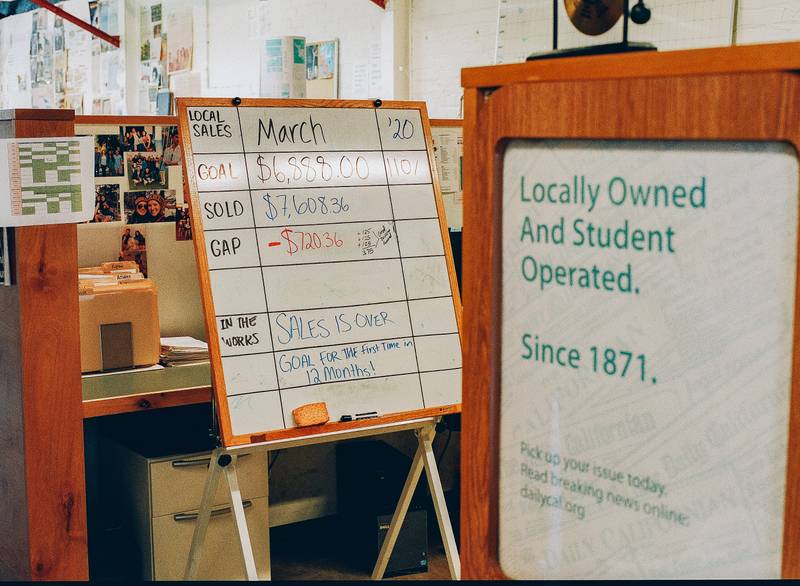 LOCAL SALES
March
'20
GOAL
$6,888.00
110%
SOLD
$7,608.36
GAP
-$720.36
IN THE WORKS
SALES IS OVER
GOAL FOR THE First Time in
12 Months!
Locally Owned
And Student
Operated.
Since 1871.
Pick up your issue today.
Read breaking news online:
dailycal.org
Californian
DAILY CALIFORNIAN
DELL